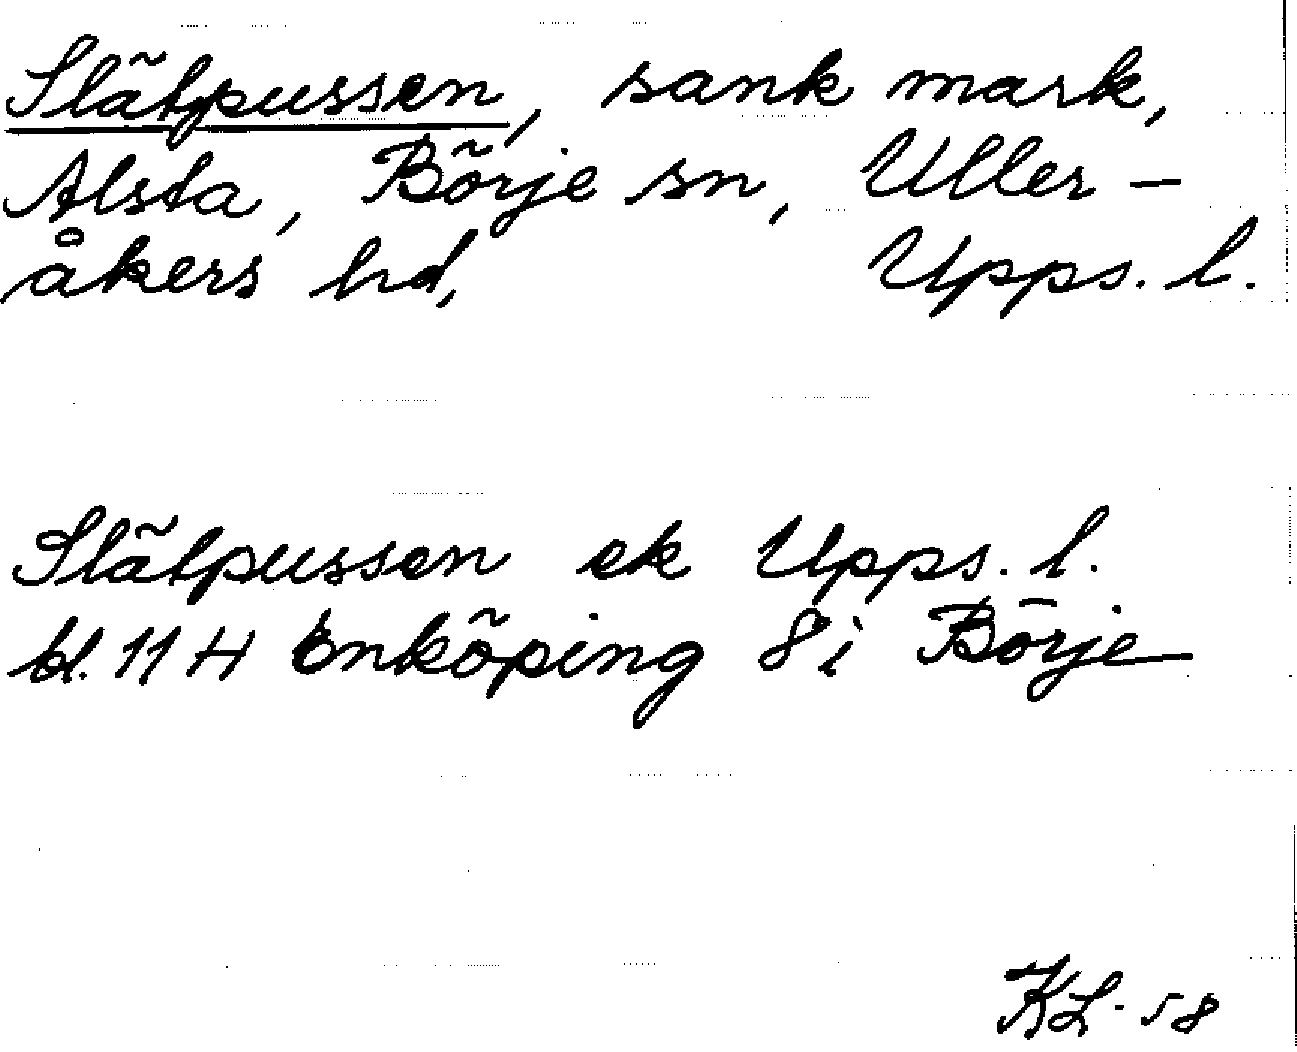 Slätpussen, sank mark,
Alsta, Börje sn, Uller-
åkers hd, Upps. l.
Slätpussen ek Upps. l.
bl. 114 Enköping 8i Börje
KL-58